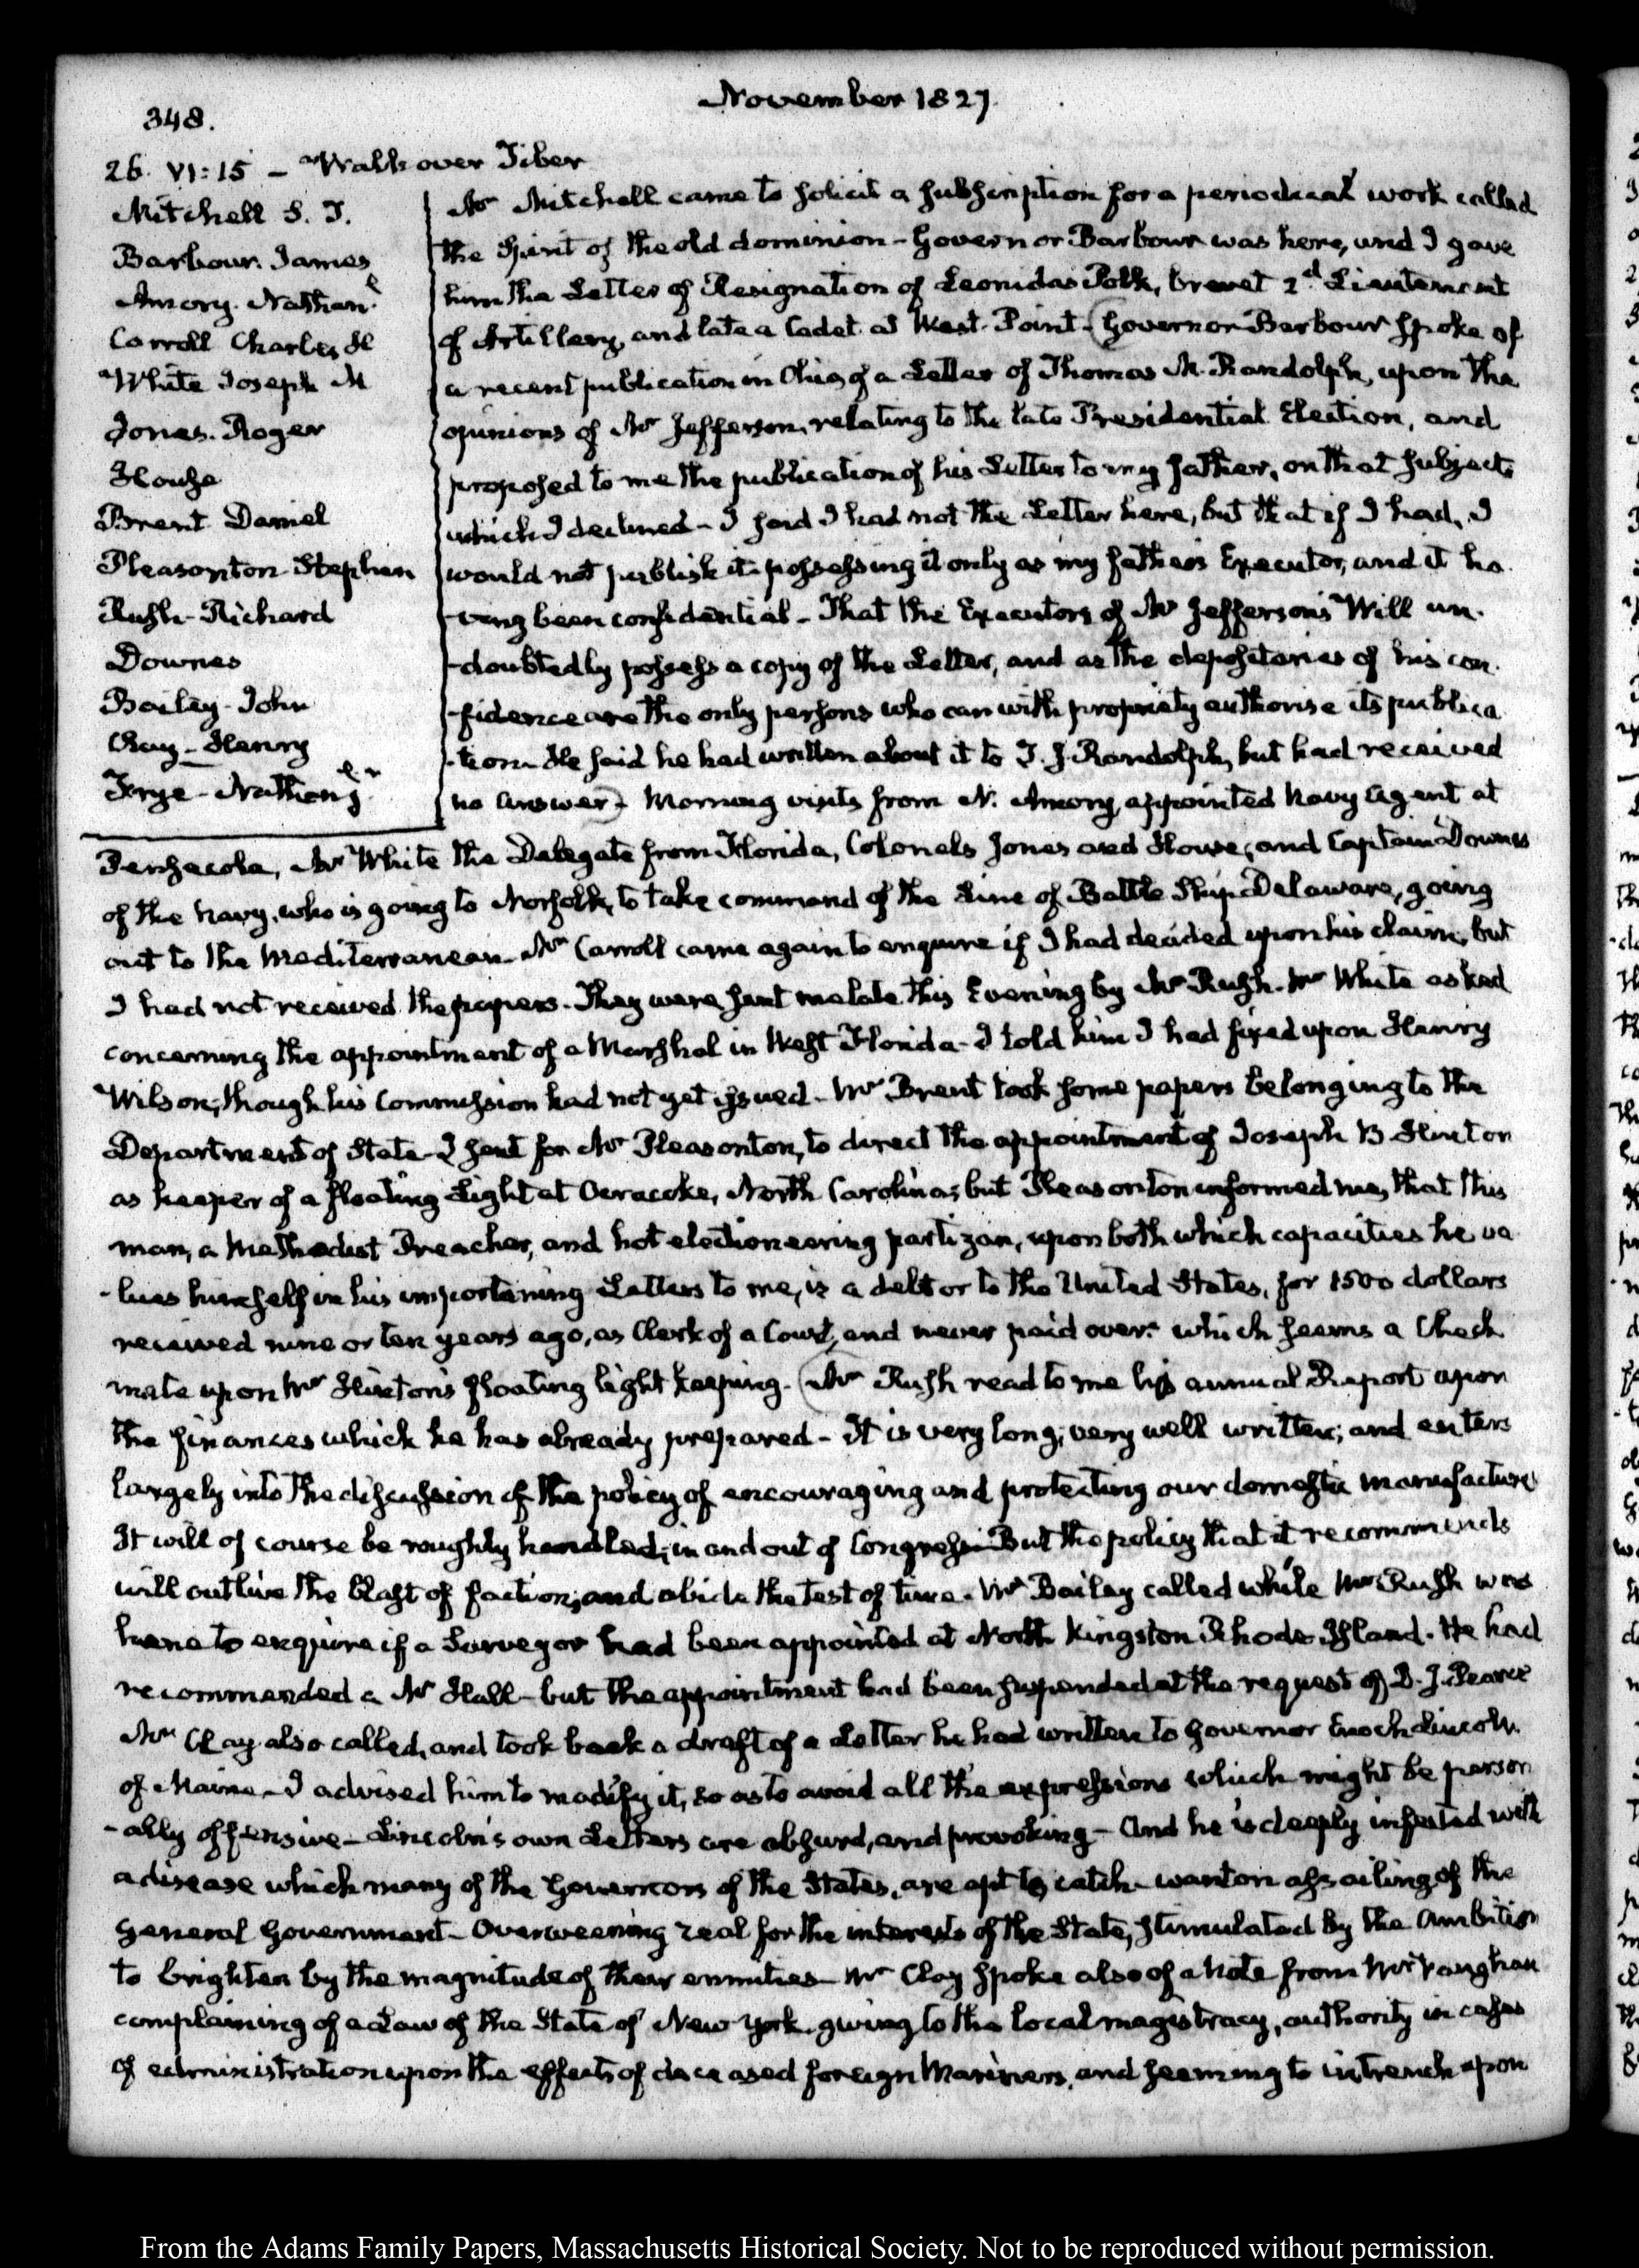 348.
November 1827.
26. VI:15 - Walk over Tiber
Mitchell S. T.
Barbour. James
Amory. Nathan.l
Carroll Charles H
White Joseph M
Jones. Roger
House
Brent Daniel
Pleasonton Stephen
Rush- Richard
Downes
Bailey- John
Clay- Henry
Frye- Nathan.l jr
Mr Mitchell came to solicit a subscription for a periodical work called
the Spirit of the old dominion- Governor Barbour was here, and I gave
him the Letter of Resignation of Leonidas Polk, brevet 2d Lieutenant
of Artillery, and late a Cadet at West-Point- (Governor Barbour spoke of
a recent publication in Ohio, of a Letter of Thomas M. Randolph, upon the
opinions of Mr Jefferson, relating to the late Presidential Election, and
proposed to me the publication of his Letter to my father, on that subject
which I declined- I said I had not the Letter here, but that if I had, I
would not publish it- possessing it only as my father's Executor, and it ha-
-ving been confidential- That the Executors of Mr Jefferson's Will un-
-doubtedly possess a copy of the Letter, and as the depositaries of his con-
-fidence are the only persons who can with propriety authorise its publica
-tion- He said he had written about it to T. J. Randolph, but had received
no answer)- Morning visits from N. Amory, appointed Navy Agent at
Pensacola, Mr White the Delegate from Florida, Colonels Jones and House, and Captain Downes
of the Navy, who is going to Norfolk, to take command of the Line of Battle Ship Delaware, going
out to the Mediterranean- Mr Carroll came again to enquire if I had decided upon his claim, but
I had not received the papers- They were sent me late this Evening by Mr Rush- Mr White asked
concerning the appointment of a Marshal in West Florida- I told him I had fixed upon Henry
Wilson, though his Commission had not yet issued- Mr Brent took some papers belonging to the
Department of State- I sent for Mr Pleasonton, to direct the appointment of Joseph B Hinton
as keeper of a floating Light at Ocracoke, North Carolina; but Pleasonton informed me, that this
man, a Methodist Preacher, and hot electioneering partizan, upon both which capacities he va
-lues himself in his importuning Letters to me, is a debtor to the United States, for 1500 dollars
received nine or ten years ago, as Clerk of a Court, and never paid over- which seems a Check
mate upon Mr Hinton's floating light keeping- (Mr Rush read to me his annual Report upon
the finances which he has already prepared- It is very long; very well written; and enters
largely into the discussion of the policy of encouraging and protecting our domestic manufactures
It will of course be roughly handled, in and out of Congress- But the policy that it recommends
will outlive the blast of faction, and abide the test of time- Mr Bailey called while Mr Rush was
here to enquire if a Surveyor had been appointed at North Kingston Rhode-Island. He had
recommended a Mr Hall- but the appointment had been suspended at the request of D. J. Pearce
Mr Clay also called, and took back a draft of a Letter he had written to Governor Enoch Lincoln
of Maine- I advised him to modify it, so as to avoid all the expressions which might be person
-ally offensive- Lincoln's own Letters are absurd, and provoking- And he is deeply infected with
a disease which many of the Governors of the States, are apt to catch- wanton assailing of the
General Government- Overweening zeal for the interests of the State, stimulated by the Ambition
to brighten by the magnitude of their enmities- Mr Clay spoke also of a Note from Mr Vaughan
complaining of a Law of the State of New York giving to the local magistracy, authority in cases
of administration upon the effects of deceased foreign Mariners, and seeming to intrench upon
From the Adams Family Papers, Massachusetts Historical Society. Not to be reproduced without permission.